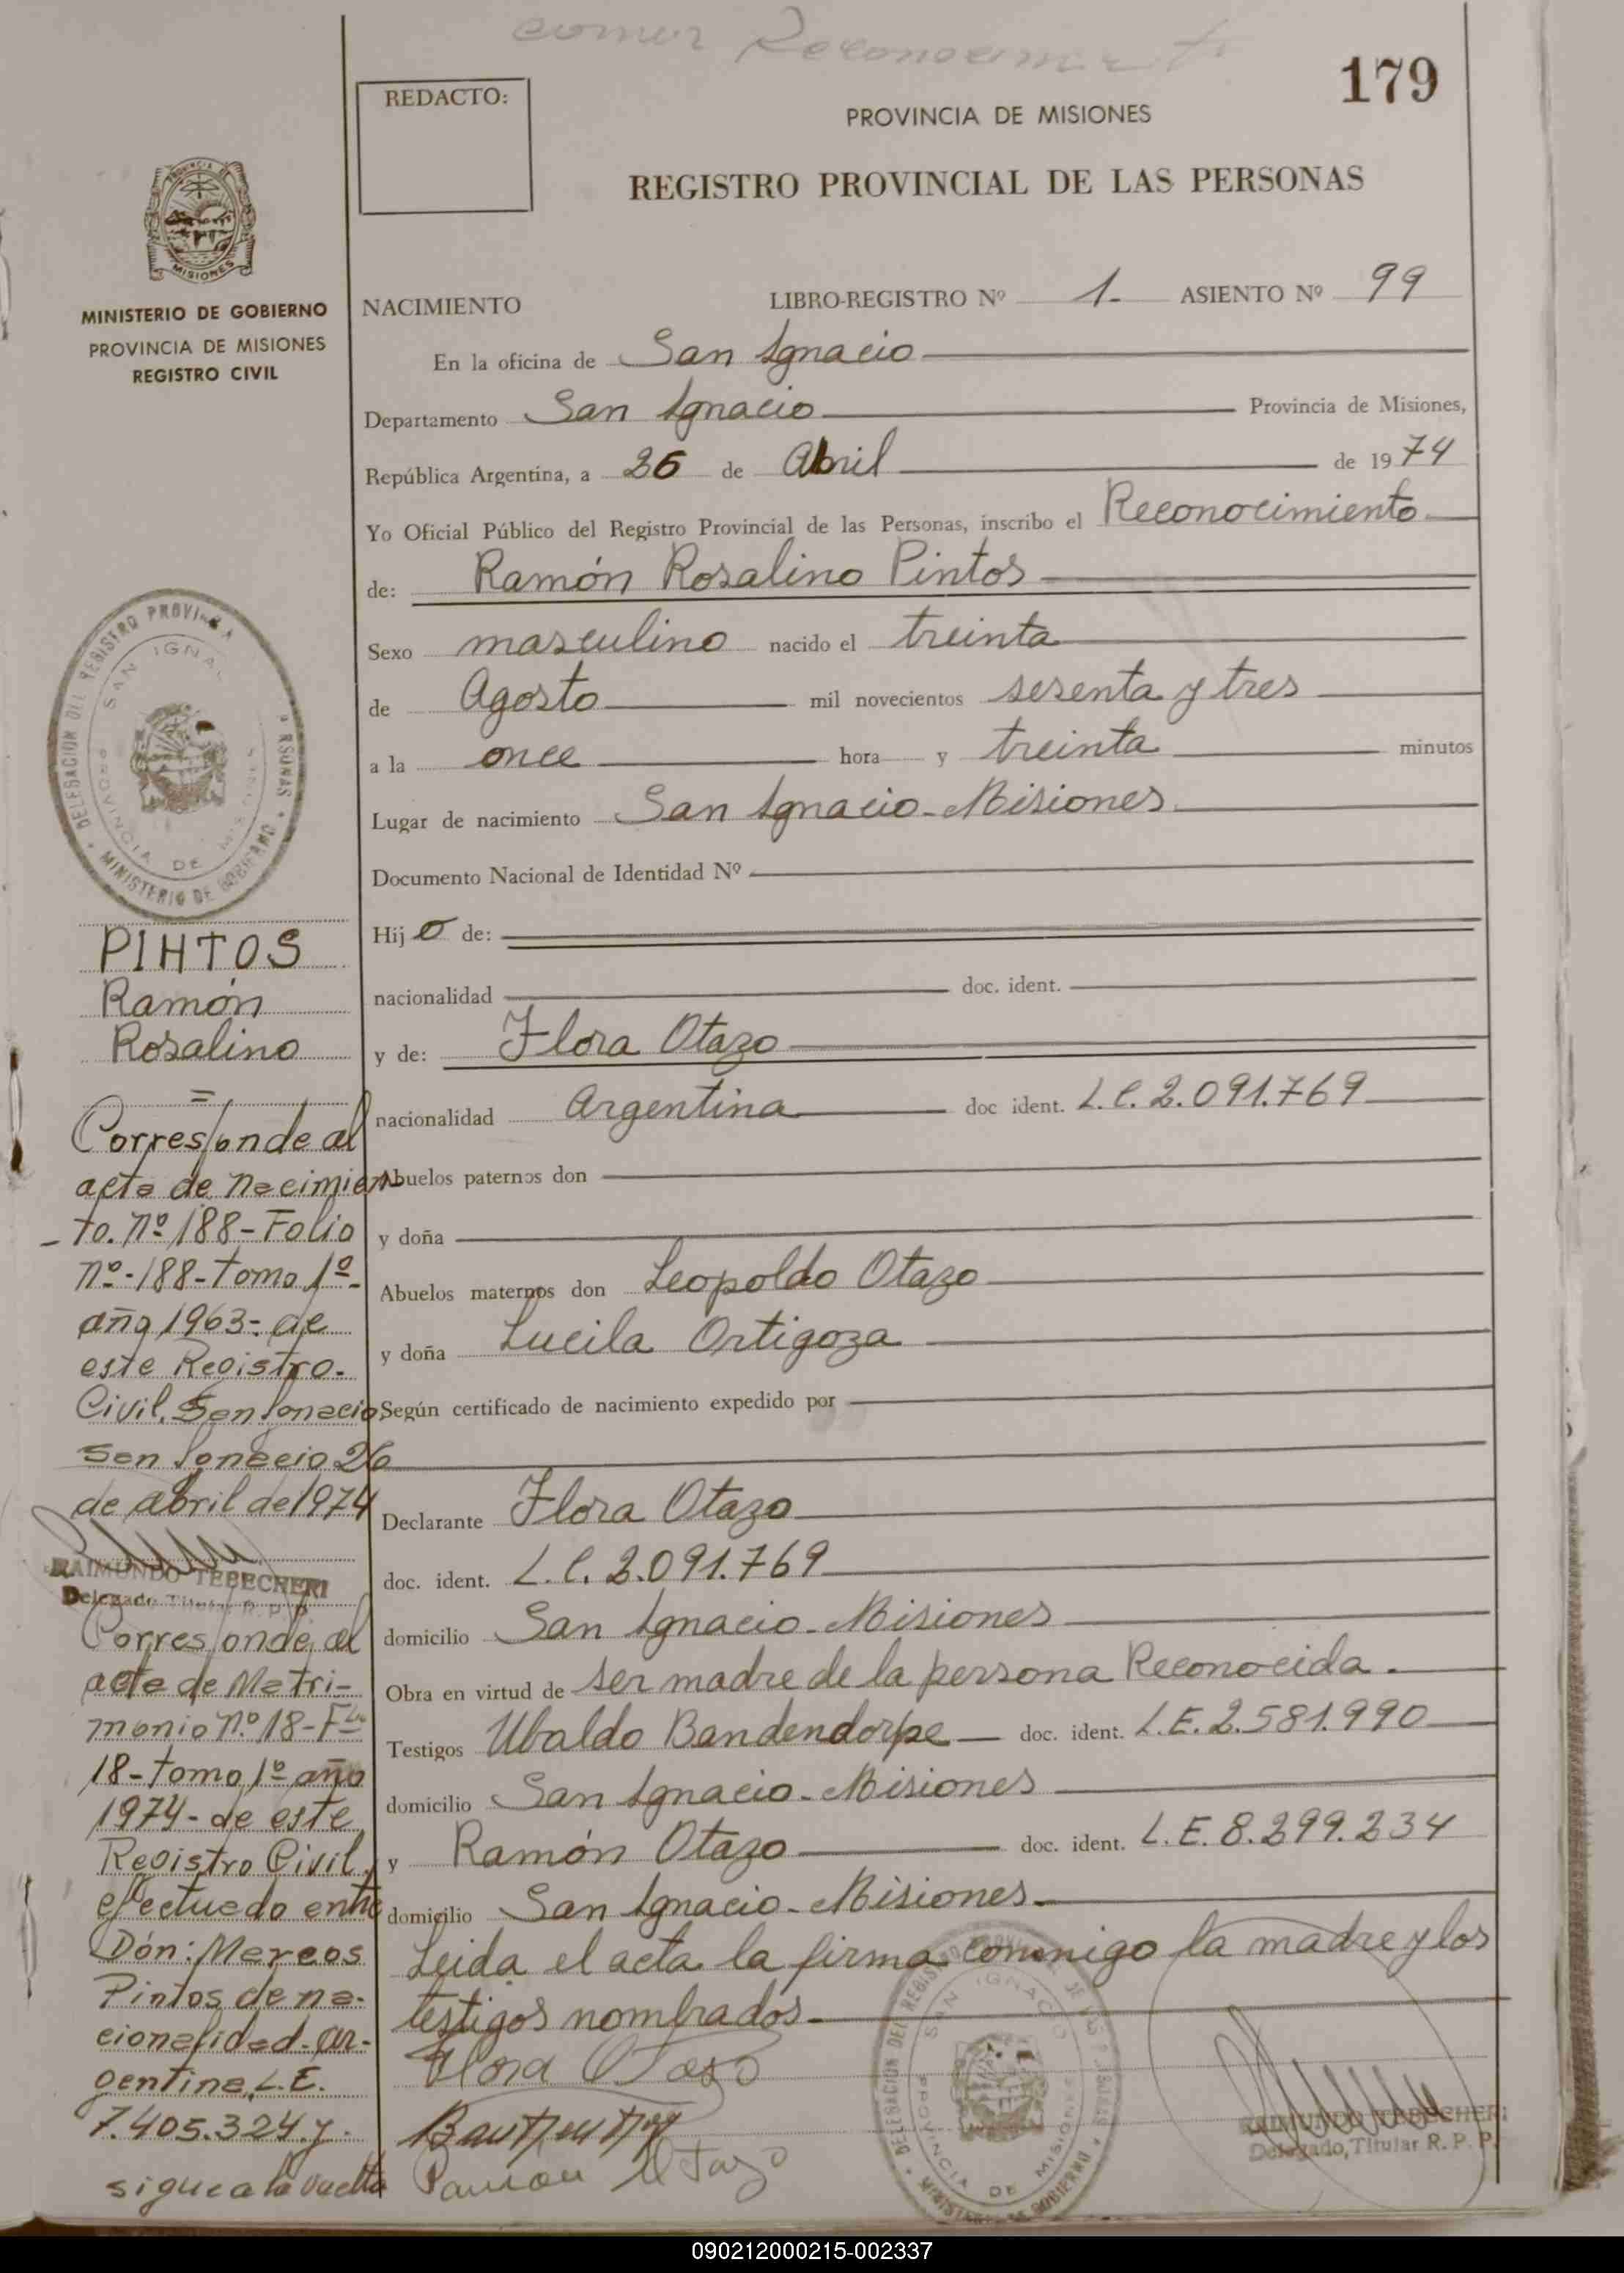 Reconocimient
179
REDACTO:
PROVINCIA DE MISIONES
REGISTRO PROVINCIAL DE LAS PERSONAS
MISIONES
MINISTERIO DE GOBIERNO
PROVINCIA DE MISIONES
REGISTRO CIVIL
NACIMIENTO LIBRO-REGISTRO Nº 1- ASIENTO Nº 99
En la oficina de San Ignacio
Departamento San Ignacio Provincia de Misiones,
República Argentina, a 26 de Abril de 1974
Yo Oficial Público del Registro Provincial de las Personas, inscribo el Reconocimiento
de: Ramón Rosalino Pintos
Sexo masculino nacido el treinta
de Agosto mil novecientos sesenta y tres
a la once hora y treinta minutos
Lugar de nacimiento San Ignacio-Misiones
Documento Nacional de Identidad Nº
Hijo de:
nacionalidad doc. ident.
y de: Flora Otazo
nacionalidad Argentina doc ident. L.C. 2.091.769
Abuelos paternos don
y doña
Abuelos maternos don Leopoldo Otazo
y doña Lucila Ortigoza
Según certificado de nacimiento expedido por
Declarante Flora Otazo
doc. ident. L.C. 2.091.769
domicilio San Ignacio-Misiones
Obra en virtud de ser madre de la persona Reconocida.
Testigos Ubaldo Bandendorpe doc. ident. L.E. 2.581.990
domicilio San Ignacio-Misiones
y Ramón Otazo doc. ident. L.E. 8.299.234
domicilio San Ignacio-Misiones
Leida el acta la firma conmigo la madre y los
testigos nombrados
Flora Otazo
Ramón Otazo
RAIMUNDO TEBECHERI
Delegado Titular R. P. P.
DELEGACION DEL REGISTRO PROVINCIAL DE LAS PERSONAS
SAN IGNACIO
PROVINCIA DE MISIONES
MINISTERIO DE GOBIERNO
PINTOS
Ramón
Rosalino
=
Corresponde al
acta de Nacimien
to. Nº 188-Folio
nº-188-tomo 1º-
año 1963-de
este Registro.
Civil. San Ignacio
San Ignacio 26
de abril de 1974
RAIMUNDO TEBECHERI
Delegado Titular R. P. P.
Corresponde al
acta de Matri-
monio nº 18-Fº
18-tomo 1º año
1974-de este
Registro Civil
efectuado entre
Dón: Marcos
Pintos de na-
cionalidad. ar-
gentina L.E.
7.405.324 y.
sigue a la vuelta
DELEGACION DEL REGISTRO
SAN IGNACIO
PROVINCIA DE MISIONES
MINISTERIO DE GOBIERNO
090212000215-002337